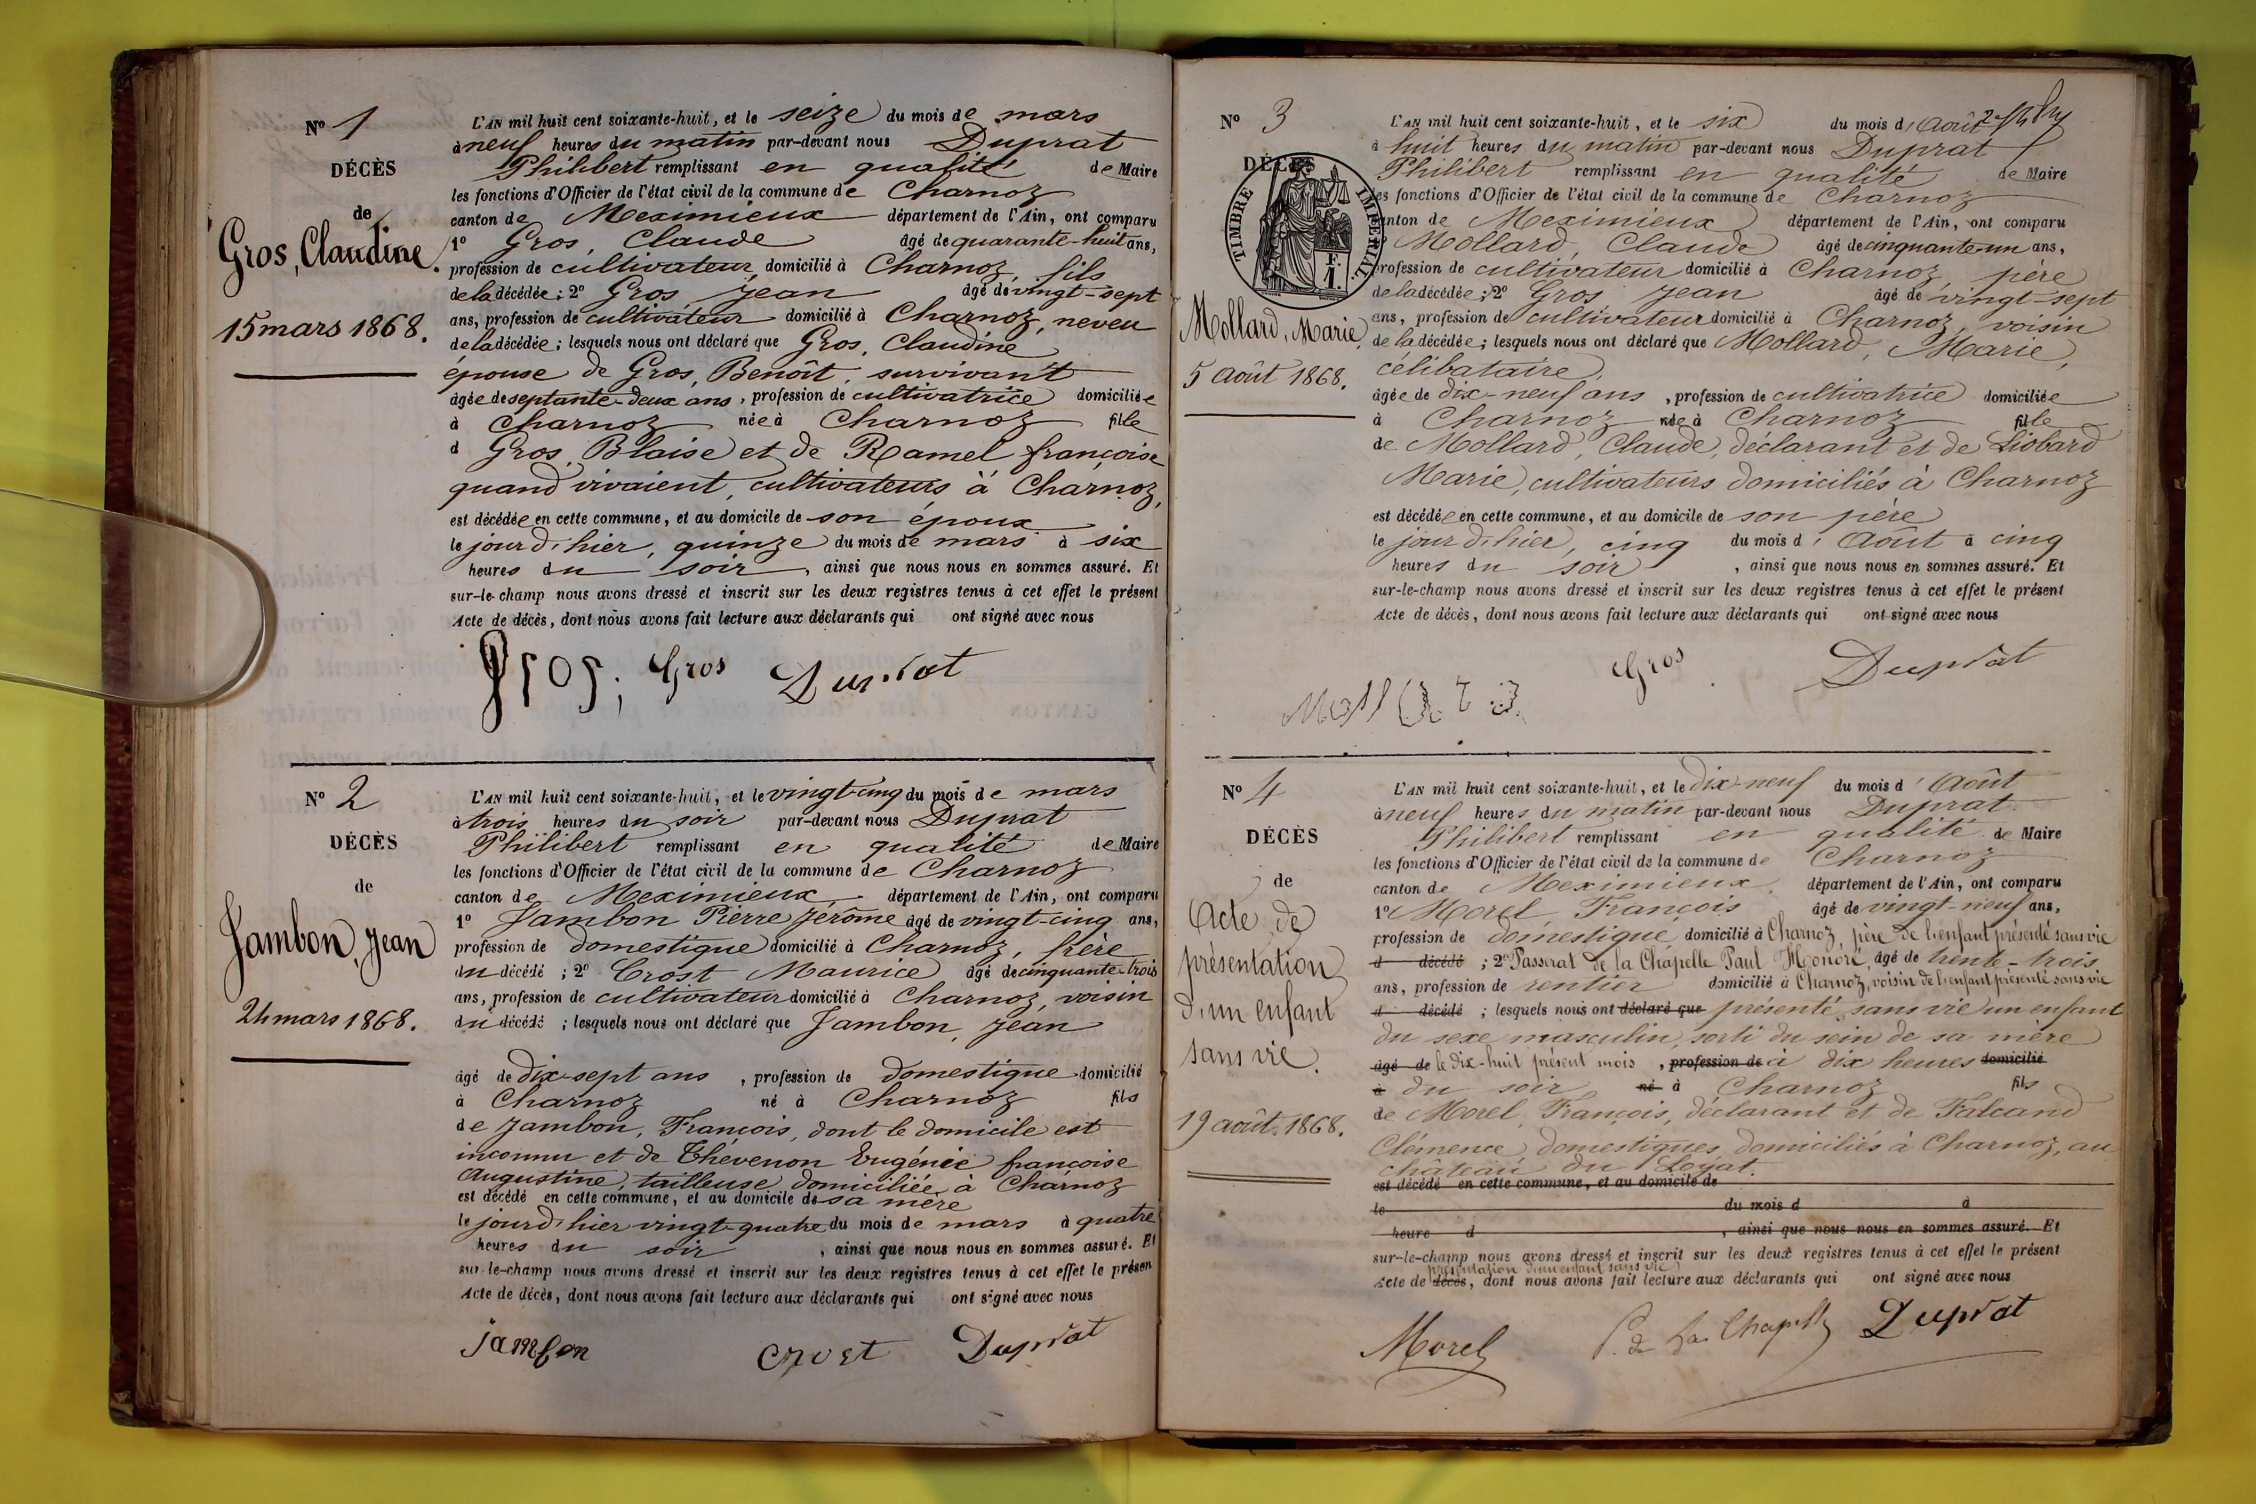 N° 1
DÉCÈS
de
Gros, Claudine.
15 mars 1868.
L'AN mil huit cent soixante-huit, et le seize du mois de mars
à neuf heures du matin par-devant nous Duprat
Philibert remplissant en qualité de Maire
les fonctions d'Officier de l'état civil de la commune de Charnoz
canton de Meximieux département de l'Ain, ont comparu
1° Gros, Claude âgé de quarante-huit ans,
profession de cultivateur domicilié à Charnoz, fils
de la décédée; 2° Gros, Jean âgé de vingt-sept
ans, profession de cultivateur domicilié à Charnoz, neveu
de la décédée; lesquels nous ont déclaré que Gros, Claudine
épouse de Gros, Benoît, survivant
âgée de septante-deux ans, profession de cultivatrice domiciliée
à Charnoz née à Charnoz fille
d Gros, Blaise et de Ramel françoise
quand vivaient, cultivateurs à Charnoz,
est décédée en cette commune, et au domicile de son époux
le jour d'hier, quinze du mois de mars à six
heures du soir, ainsi que nous nous en sommes assuré. Et
sur-le-champ nous avons dressé et inscrit sur les deux registres tenus à cet effet le présent
Acte de décès, dont nous avons fait lecture aux déclarants qui ont signé avec nous
Gros; Gros Duprat
N° 2
DÉCÈS
de
Jambon, Jean
24 mars 1868.
L'AN mil huit cent soixante-huit, et le vingt-cinq du mois de mars
à trois heures du soir par-devant nous Duprat
Philibert remplissant en qualité de Maire
les fonctions d'Officier de l'état civil de la commune de Charnoz
canton de Meximieux, département de l'Ain, ont comparu
1° Jambon Pierre Jérôme âgé de vingt-cinq ans,
profession de domestique domicilié à Charnoz, frère
du décédé; 2° Crost Maurice âgé de cinquante-trois
ans, profession de cultivateur domicilié à Charnoz, voisin
du décédé; lesquels nous ont déclaré que Jambon, Jean
âgé de dix-sept ans, profession de domestique domicilié
à Charnoz né à Charnoz fils
de Jambon, François, dont le domicile est
inconnu et de Thévenon Eugénie françoise
Augustine, tailleuse domiciliée à Charnoz
est décédé en cette commune, et au domicile de sa mère
le jour d'hier vingt-quatre du mois de mars à quatre
heures du soir, ainsi que nous nous en sommes assuré. Et
sur-le-champ nous avons dressé et inscrit sur les deux registres tenus à cet effet le présen
Acte de décès, dont nous avons fait lecture aux déclarants qui ont signé avec nous
jambon crost Duprat
N° 3
DÉCÈS
TIMBRE IMPÉRIAL
F.
1.
Mollard, Marie,
5 août 1868.
L'AN mil huit cent soixante-huit, et le six du mois d'Août
à huit heures du matin par-devant nous Duprat
Philibert remplissant en qualité de Maire
les fonctions d'Officier de l'état civil de la commune de Charnoz
canton de Meximieux département de l'Ain, ont comparu
Mollard, Claude âgé de cinquante-un ans,
profession de cultivateur domicilié à Charnoz, père
de la décédée; 2° Gros Jean âgé de vingt-sept
ans, profession de cultivateur domicilié à Charnoz, voisin
de la décédée; lesquels nous ont déclaré que Mollard, Marie,
célibataire,
âgée de dix-neuf ans, profession de cultivatrice domiciliée
à Charnoz née à Charnoz fille
de Mollard, Claude, déclarant et de Liobard
Marie, cultivateurs domiciliés à Charnoz
est décédée en cette commune, et au domicile de son père
le jour d'hier, cinq du mois d'Août à cinq
heures du soir, ainsi que nous nous en sommes assuré. Et
sur-le-champ nous avons dressé et inscrit sur les deux registres tenus à cet effet le présent
Acte de décès, dont nous avons fait lecture aux déclarants qui ont signé avec nous
Gros Duprat
N° 4
DÉCÈS
de
Acte de
présentation
d'un enfant
sans vie.
19 août 1868.
L'AN mil huit cent soixante-huit, et le dix-neuf du mois d'Août
à neuf heures du matin par-devant nous Duprat
Philibert remplissant en qualité de Maire
les fonctions d'Officier de l'état civil de la commune de Charnoz
canton de Meximieux, département de l'Ain, ont comparu
1° Morel, François âgé de vingt-neuf ans,
profession de domestique domicilié à Charnoz, père de l'enfant présenté sans vie
d décédé; 2° Passerat de la Chapelle Paul Honoré, âgé de trente-trois
ans, profession de rentier domicilié à Charnoz, voisin de l'enfant présenté sans vie
d décédé; lesquels nous ont déclaré que présenté sans vie un enfant
du sexe masculin, sorti du sein de sa mère
âgé de le dix-huit présent mois, profession de à dix heures domicilié
à du soir né à Charnoz fils
de Morel, François, déclarant et de Falcand
Clémence domestiques domiciliés à Charnoz, au
château du Loyat.
est décédé en cette commune, et au domicile de
le du mois d à
heure d, ainsi que nous nous en sommes assuré. Et
sur-le-champ nous avons dressé et inscrit sur les deux registres tenus à cet effet le présent
présentation d'un enfant sans vie
Acte de décès, dont nous avons fait lecture aux déclarants qui ont signé avec nous
Morel P. de La Chapelle Duprat